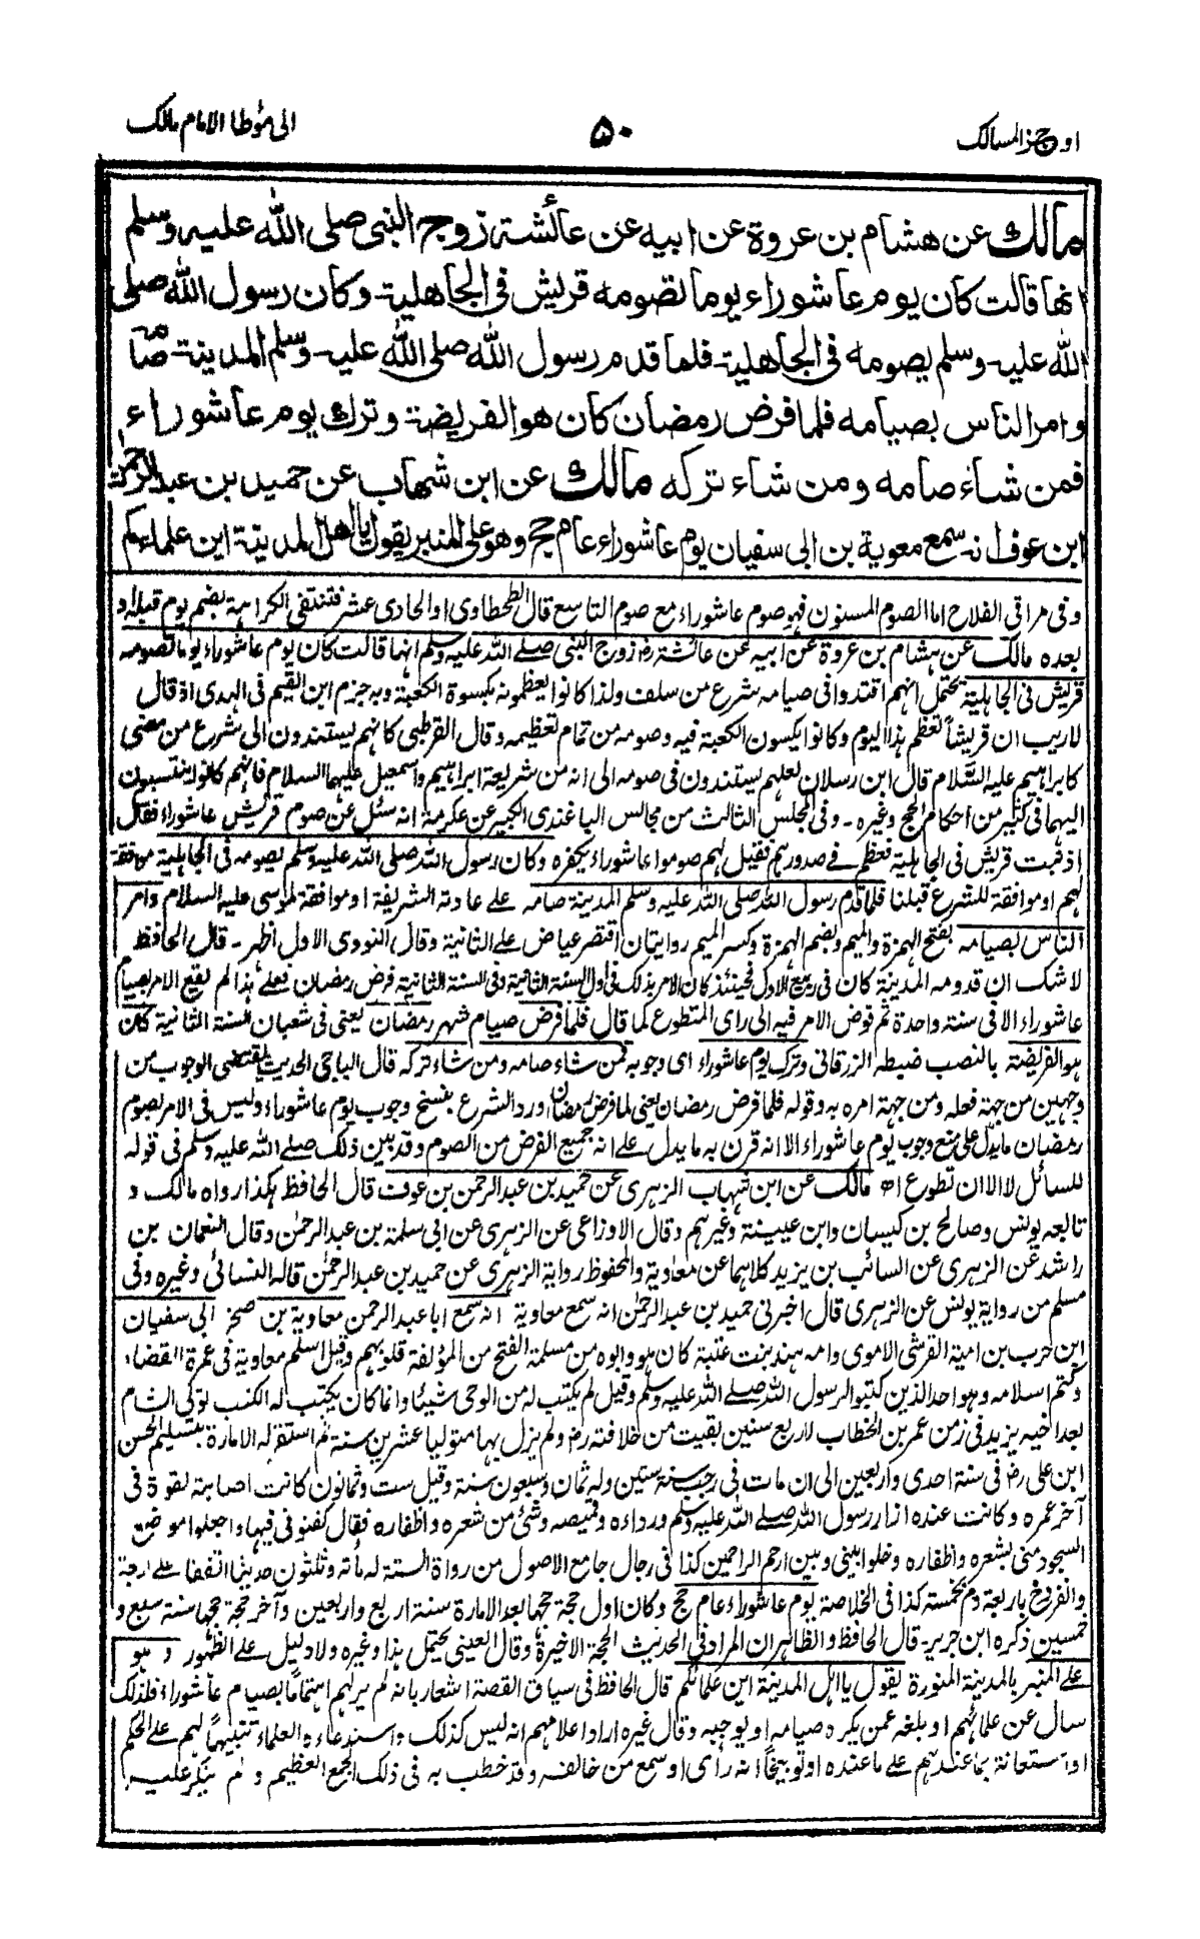 اوجز المسالك
٥٠
الى مؤطا الامام مالك
مالك عن هشام بن عروة عن ابيه عن عائشة زوج النبى صلى الله عليه وسلم
انها قالت كان يوم عاشوراء يوما تصومه قريش فى الجاهلية وكان رسول الله صلى
الله عليه وسلم يصومه فى الجاهلية فلما قدم رسول الله صلى الله عليه وسلم المدينة صامه
وامر الناس بصيامه فلما فرض رمضان كان هو الفريضة وترك يوم عاشوراء
فمن شاء صامه ومن شاء تركه مالك عن ابن شهاب عن حميد بن عبد الرحمن
ابن عوف انه سمع معوية بن ابى سفيان يوم عاشوراء عام حج وهو على المنبر يقول يا اهل المدينة اين علماءكم
وفى مراقى الفلاح اما الصوم المسنون فهو صوم عاشوراء مع صوم التاسع قال الطحطاوى او الحادى عشر فتنتفى الكراهة بضم يوم قبله او
بعده مالك عن هشام بن عروة عن ابيه عن عائشة رض زوج النبى صلى الله عليه وسلم انها قالت كان يوم عاشوراء يوما تصومه
قريش فى الجاهلية يحتمل انهم اقتدوا فى صيامه بشرع من سلف ولذا كانوا يعظمونه بكسوة الكعبة وبه جزم ابن القيم فى الهدى اذ قال
لا ريب ان قريشا تعظم هذا اليوم وكانوا يكسون الكعبة فيه وصومه من تمام تعظيمه وقال القرطبى كانهم يستندون الى شرع من مضى
كابراهيم عليه السلام قال ابن رسلان لعلهم يستندون فى صومه الى انه من شريعة ابراهيم واسمعيل عليهما السلام فانهم كانوا ينتسبون
اليهما فى كثير من احكام الحج وغيره ـ وفى المجلس الثالث من مجالس الباغندى الكبير عن عكرمة انه سئل عن صوم قريش عاشوراء فقال
اذنبت قريش فى الجاهلية فعظم فى صدورهم فقيل لهم صوموا عاشوراء يكفره وكان رسول الله صلى الله عليه وسلم يصومه فى الجاهلية موافقة
لهم او موافقة للشرع قبلنا فلما قدم رسول الله صلى الله عليه وسلم المدينة صامه على عادته الشريفة او موافقة لموسى عليه السلام وامر
الناس بصيامه بفتح الهمزة والميم وبضم الهمزة وكسر الميم روايتان اقتصر عياض على الثانية وقال النووى الاول اظهر ـ قال الحافظ
لا شك ان قدومه المدينة كان فى ربيع الاول فحينئذ كان الامر بذلك فى اول السنة الثانية وفى السنة الثانية فرض رمضان فعلى هذا لم يقع الامر بصيام
عاشوراء الا فى سنة واحدة ثم فوض الامر فيه الى راى المتطوع لما قال فلما فرض صيام شهر رمضان يعنى فى شعبان السنة الثانية كان
هو الفريضة بالنصب ضبطه الزرقانى وترك يوم عاشوراء اى وجوبه فمن شاء صامه ومن شاء تركه قال الباجى الحديث يقتضى الوجوب من
وجهين من جهة فعله ومن جهة امره به وقوله فلما فرض رمضان يعنى لما فرض رمضان ورد الشرع بنسخ وجوب يوم عاشوراء وليس فى الامر بصوم
رمضان ما يدل على منع وجوب يوم عاشوراء الا انه قرن به ما يدل على انه جميع الفرض من الصوم وقد بين ذلك صلى الله عليه وسلم فى قوله
للسائل لا الا ان تطوع اه مالك عن ابن شهاب الزهرى عن حميد بن عبد الرحمن بن عوف قال الحافظ هكذا رواه مالك و
تابعه يونس وصالح بن كيسان وابن عيينة وغيرهم وقال الاوزاعى عن الزهرى عن ابى سلمة بن عبد الرحمن وقال النعمان بن
راشد عن الزهرى عن السائب بن يزيد كلاهما عن معاوية والمحفوظ رواية الزهرى عن حميد بن عبد الرحمن قاله النسائى وغيره وفى
مسلم من رواية يونس عن الزهرى قال اخبرنى حميد بن عبد الرحمن انه سمع معاوية انه سمع ابا عبد الرحمن معاوية بن صخر ابى سفيان
ابن حرب بن امية القرشى الاموى وامه هند بنت عتبة كان هو وابوه من مسلمة الفتح من المؤلفة قلوبهم وقيل اسلم معاوية فى عمرة القضاء
وكتم اسلامه وهو احد الذين كتبوا لرسول الله صلى الله عليه وسلم وقيل لم يكتب له من الوحى شيئا وانما كان يكتب له الكتب تولى الشام
بعد اخيه يزيد فى زمن عمر بن الخطاب لاربع سنين بقيت من خلافته رض ولم يزل بها متوليا عشرين سنة ثم استقر له الامارة بتسليم الحسن
ابن على رض فى سنة احدى واربعين الى ان مات فى رجب سنة ستين وله ثمان وسبعون سنة وقيل ست وثمانون كانت اصابته لقوة فى
آخر عمره وكانت عنده ازار رسول الله صلى الله عليه وسلم ورداءه وقميصه وشئ من شعره واظفاره فقال كفنونى فيها واجعلوا مواضع
السجود منى بشعره واظفاره وخلوا بينى وبين ارحم الراحمين كذا فى رجال جامع الاصول من رواة الستة له مائة وثلثون حديثا اتفقا على اربعة
وانفرد خ باربعة وم بخمسة كذا فى الخلاصة يوم عاشوراء عام حج وكان اول حجة حجها بعد الامارة سنة اربع واربعين وآخر حجة حجها سنة سبع و
خمسين ذكره ابن جرير ـ قال الحافظ والظاهر ان المراد فى الحديث الحجة الاخيرة وقال العينى يحتمل هذا وغيره ولا دليل على الظهور وهو
على المنبر بالمدينة المنورة يقول يا اهل المدينة اين علمائكم قال الحافظ فى سياق القصة اشعار بانه لم ير لهم اهتماما بصيام عاشوراء فلذلك
سال عن علمائهم او بلغه عمن يكره صيامه او يوجبه وقال غيره اراد اعلامهم انه ليس كذلك واستدعاءه العلماء تنبيها لهم على الحكم
او استعانة بما عندهم على ما عنده او توبيخا انه رأى او سمع من خالفه وقد خطب به فى ذلك الجمع العظيم ولم ينكر عليه